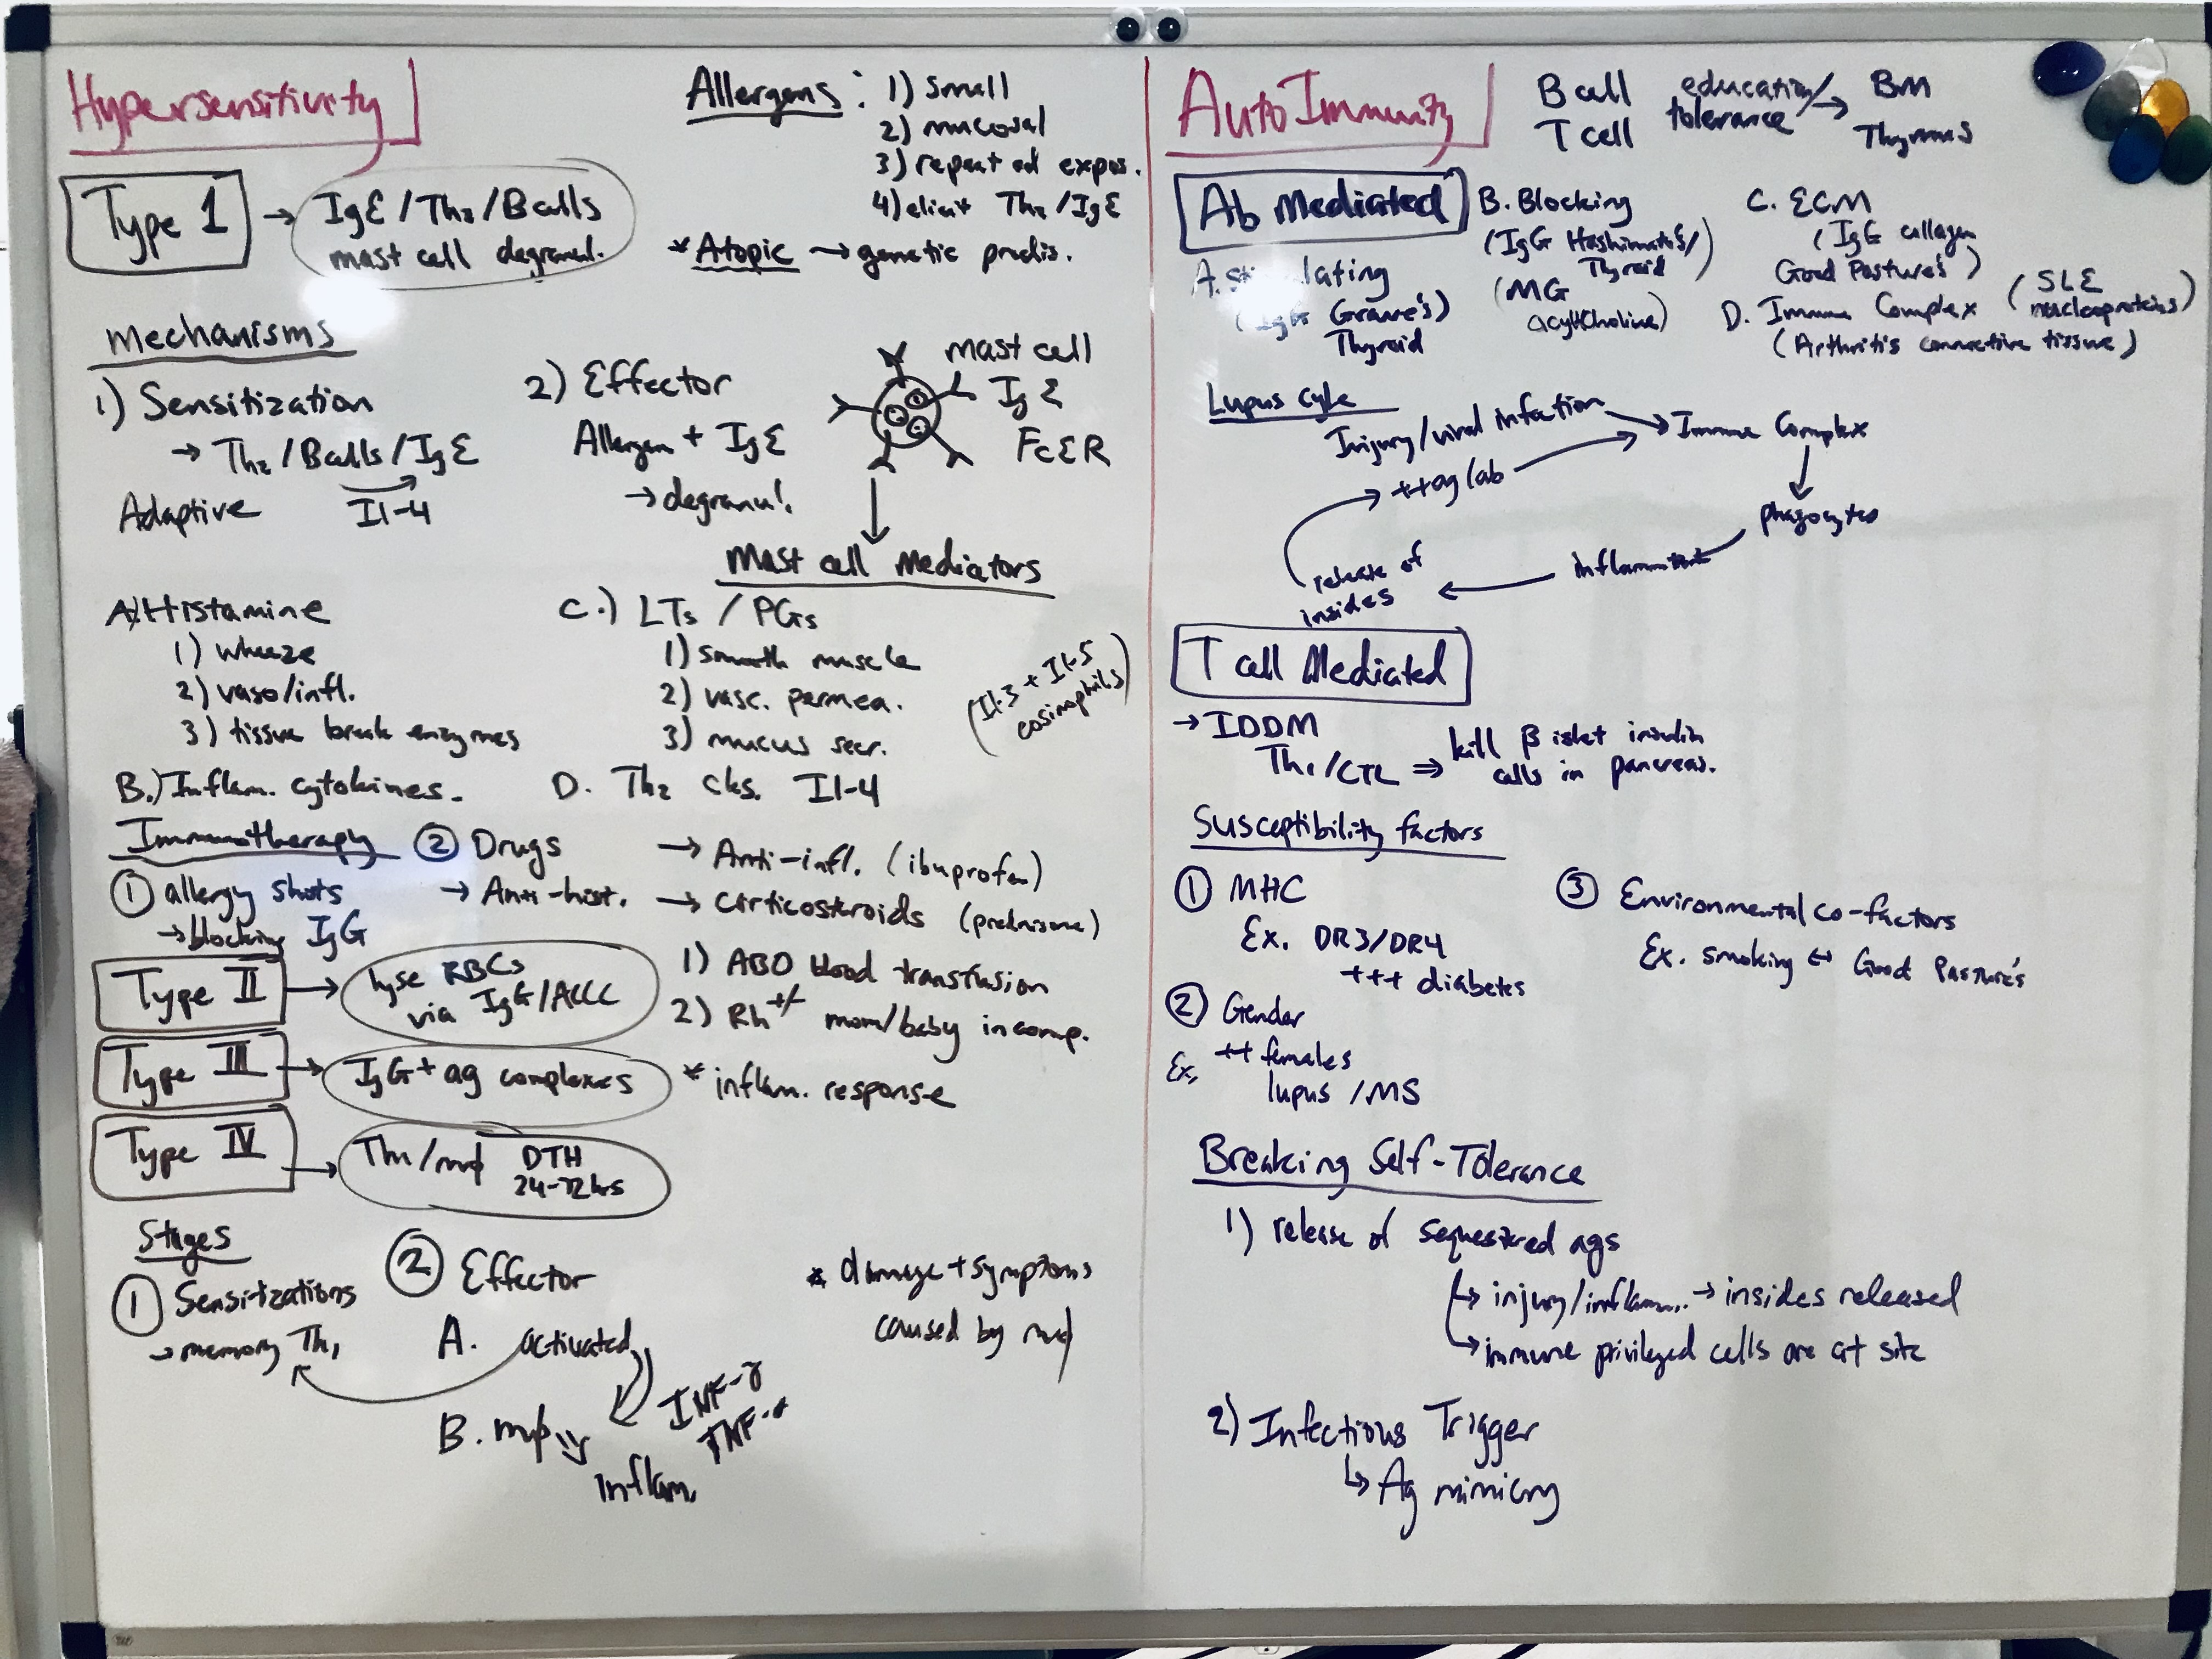 Hypersensitivity
Allergens: 1) small
2) mucosal
3) repeat ad expos.
4) elicit Th₂/IgE
Type 1 → IgE/Th₂/B cells
mast cell degranul.
* Atopic → genetic predis.
Mechanisms
1) Sensitization
→ Th₂/B cells/IgE
Adaptive Il-4
2) Effector
Allergen + IgE
→ degranul.
mast cell
IgE
FcεR
Mast cell Mediators
A) Histamine
1) wheeze
2) vaso/infl.
3) tissue break enzymes
B.) Inflam. cytokines.
C.) LTs / PGs
1) smooth muscle
2) vasc. permea.
3) mucus secr.
(Il-3 + Il-5
eosinophils)
D. Th₂ cks. Il-4
Immunotherapy
① allergy shots
→ blocking IgG
② Drugs
→ Anti-hist.
→ Anti-infl. (ibuprofen)
→ corticosteroids (prednisone)
Type II → lyse RBCs
via IgG/
1) ABO blood transfusion
2) Rh+/- mom/baby incomp.
Type III → IgG + ag complexes
* inflam. response
Type IV → Th₁/mφ DTH
24-72hrs
Stages
① Sensitizations
→ memory Th₁
② Effector
A. activated
INF-γ
TNF-α
B. mφ
Inflam.
* damage + symptoms
caused by mφ
AutoImmunity
B cell education/ → BM
T cell tolerance Thymus
Ab Mediated
A. Stimulating
(IgG Grave's)
Thyroid
B. Blocking
(IgG Hashimoto's/
Thyroid)
(MG
acylcholine)
C. ECM
(IgG collagen
Good Pasture's)
D. Immune Complex (SLE
nucleoproteins)
(Arthritis connective tissue)
Lupus Cycle
Injury/viral infection → Immune Complex
++ag/ab
phagocytes
inflammation
release of
insides
T cell Mediated
→ IDDM
Th₁/CTL ⇒ kill β islet insulin
cells in pancreas.
Susceptibility factors
① MHC
Ex. DR3/DR4
+++ diabetes
② Gender
Ex. ++ females
lupus /MS
③ Environmental co-factors
Ex. smoking ↔ Good Pasture's
Breaking Self-Tolerance
1) release of sequestered ags
↳ injury/inflam... → insides released
↳ immune privileged cells are at site
2) Infectious Trigger
↳ Ag mimicry